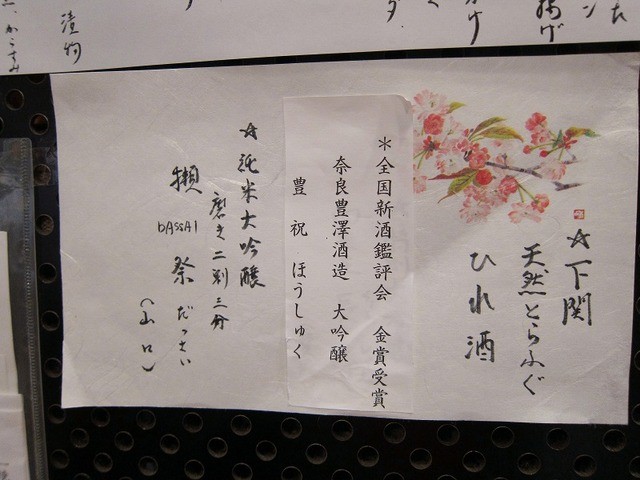 ☆下関
天然とらふぐ
ひれ酒
＊全国新酒鑑評会 金賞受賞
奈良豊澤酒造 大吟醸
豊祝 ほうしゅく
☆純米大吟醸
磨き二割三分
獺祭 だっさい
DASSAI
（山口）
漬物